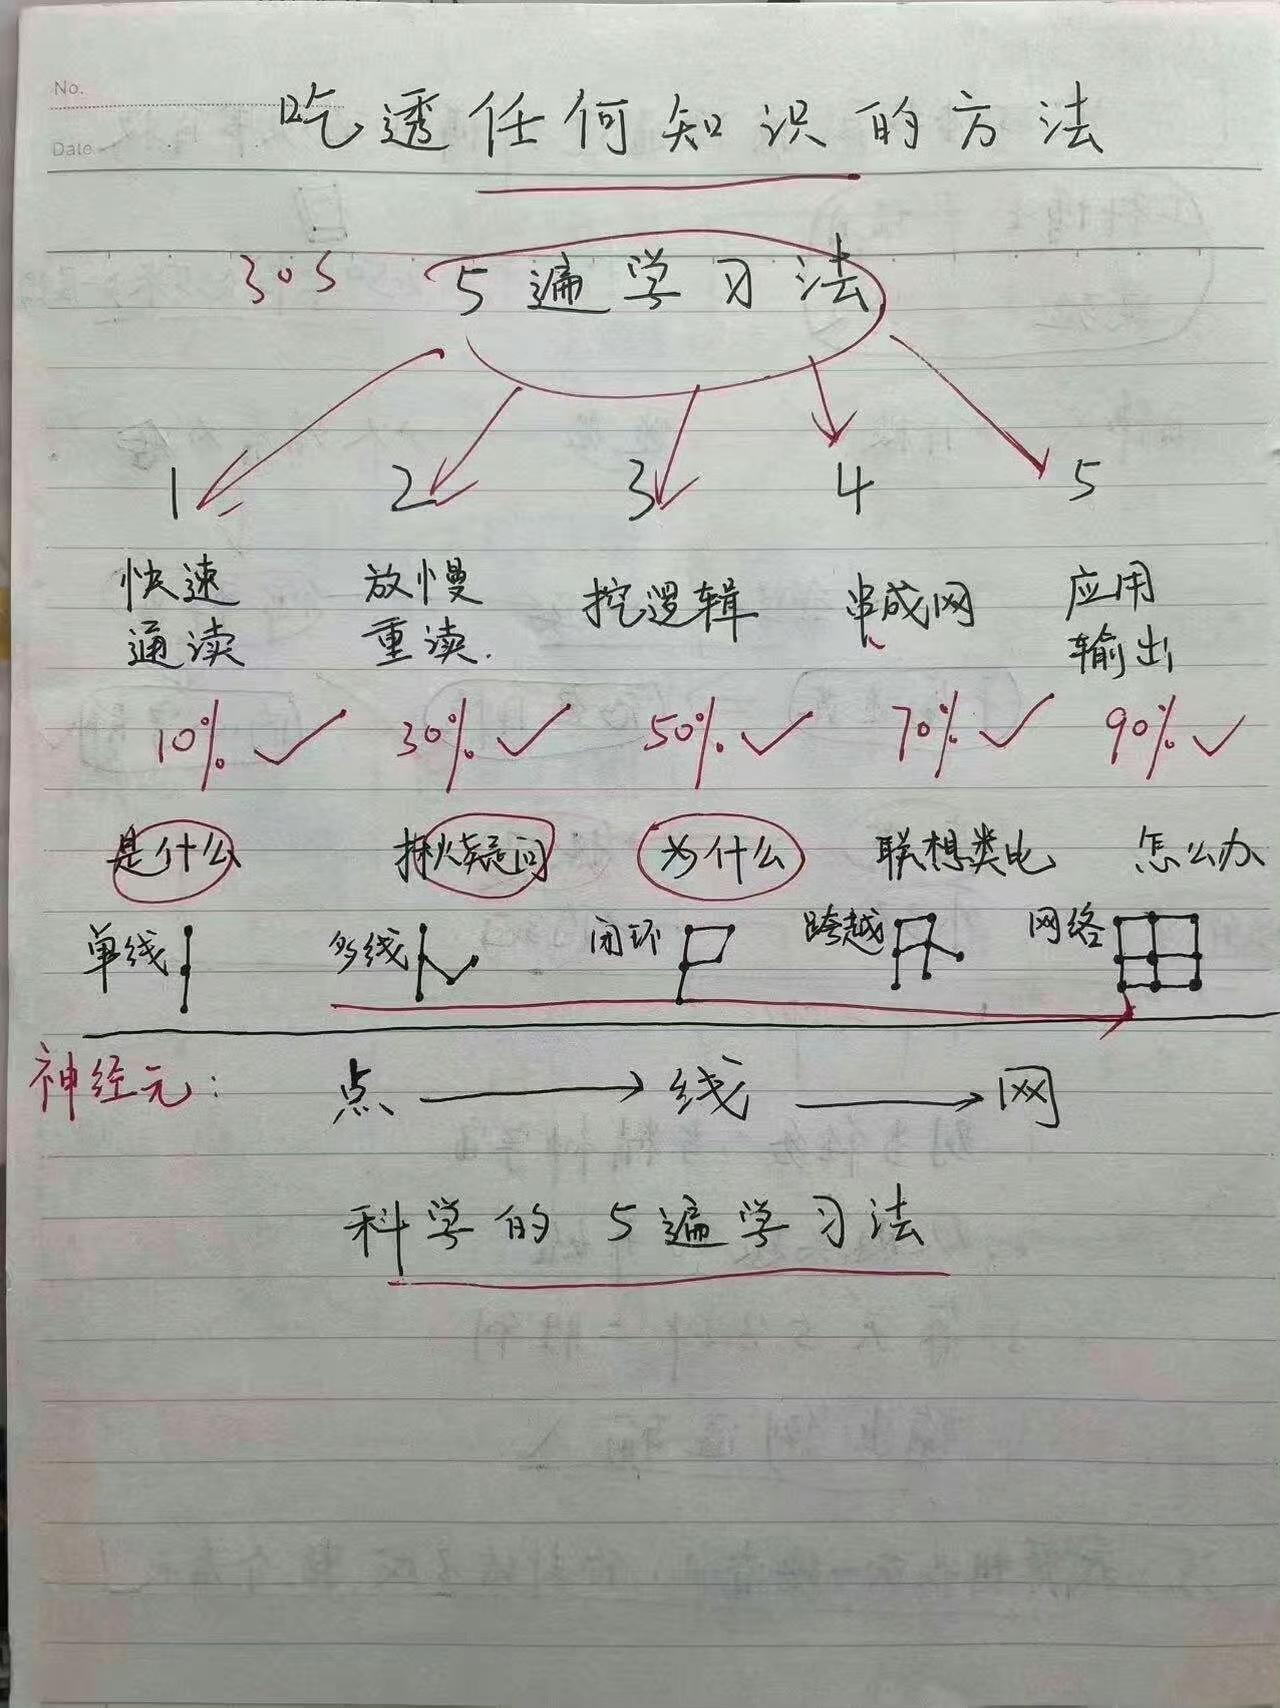 No.
Date
吃透任何知识的方法
30S 5遍学习法
1 2 3 4 5
快速通读 放慢重读. 挖逻辑 串成网 应用输出
10% 30% 50% 70% 90%
是什么 揪疑问 为什么 联想类比 怎么办
单线 多线 闭环 跨越 网络
神经元: 点 → 线 → 网
科学的5遍学习法